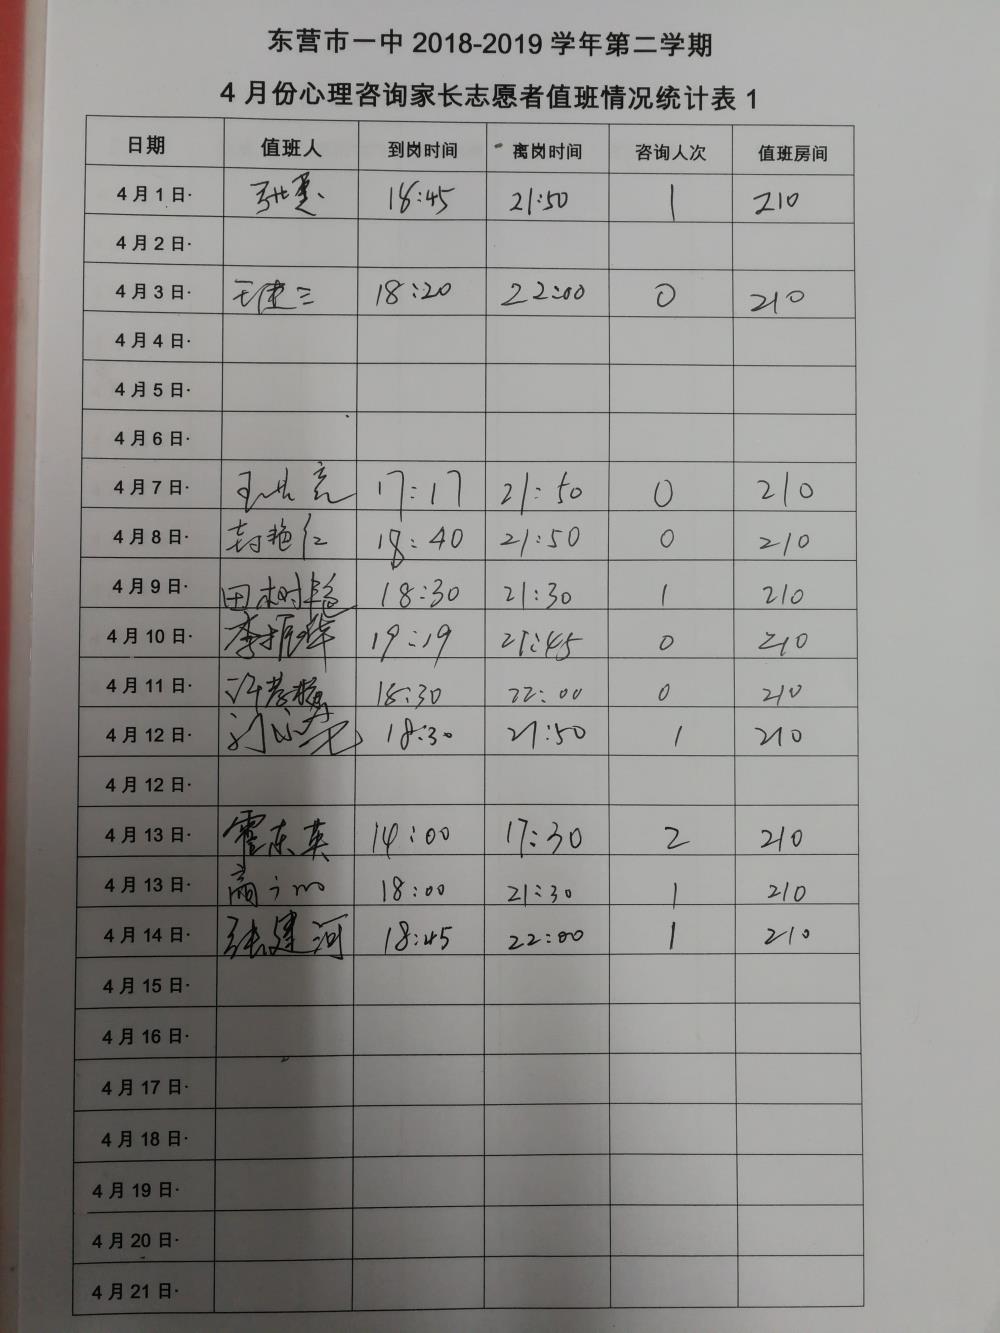 东营市一中 2018-2019 学年第二学期
4 月份心理咨询家长志愿者值班情况统计表 1
日期 值班人 到岗时间 离岗时间 咨询人次 值班房间
4 月 1 日· 18:45 21:50 1 210
4 月 2 日·
4 月 3 日· 18:20 22:00 0 210
4 月 4 日·
4 月 5 日·
4 月 6 日·
4 月 7 日· 17:17 21:50 0 210
4 月 8 日· 封艳仁 18:40 21:50 0 210
4 月 9 日· 田树 18:30 21:30 1 210
4 月 10 日· 李振华 19:19 21:45 0 210
4 月 11 日· 18:30 22:00 0 210
4 月 12 日· 18:30 21:50 1 210
4 月 12 日·
4 月 13 日· 霍东英 14:00 17:30 2 210
4 月 13 日· 18:00 21:30 1 210
4 月 14 日· 张建河 18:45 22:00 1 210
4 月 15 日·
4 月 16 日·
4 月 17 日·
4 月 18 日·
4 月 19 日·
4 月 20 日·
4 月 21 日·